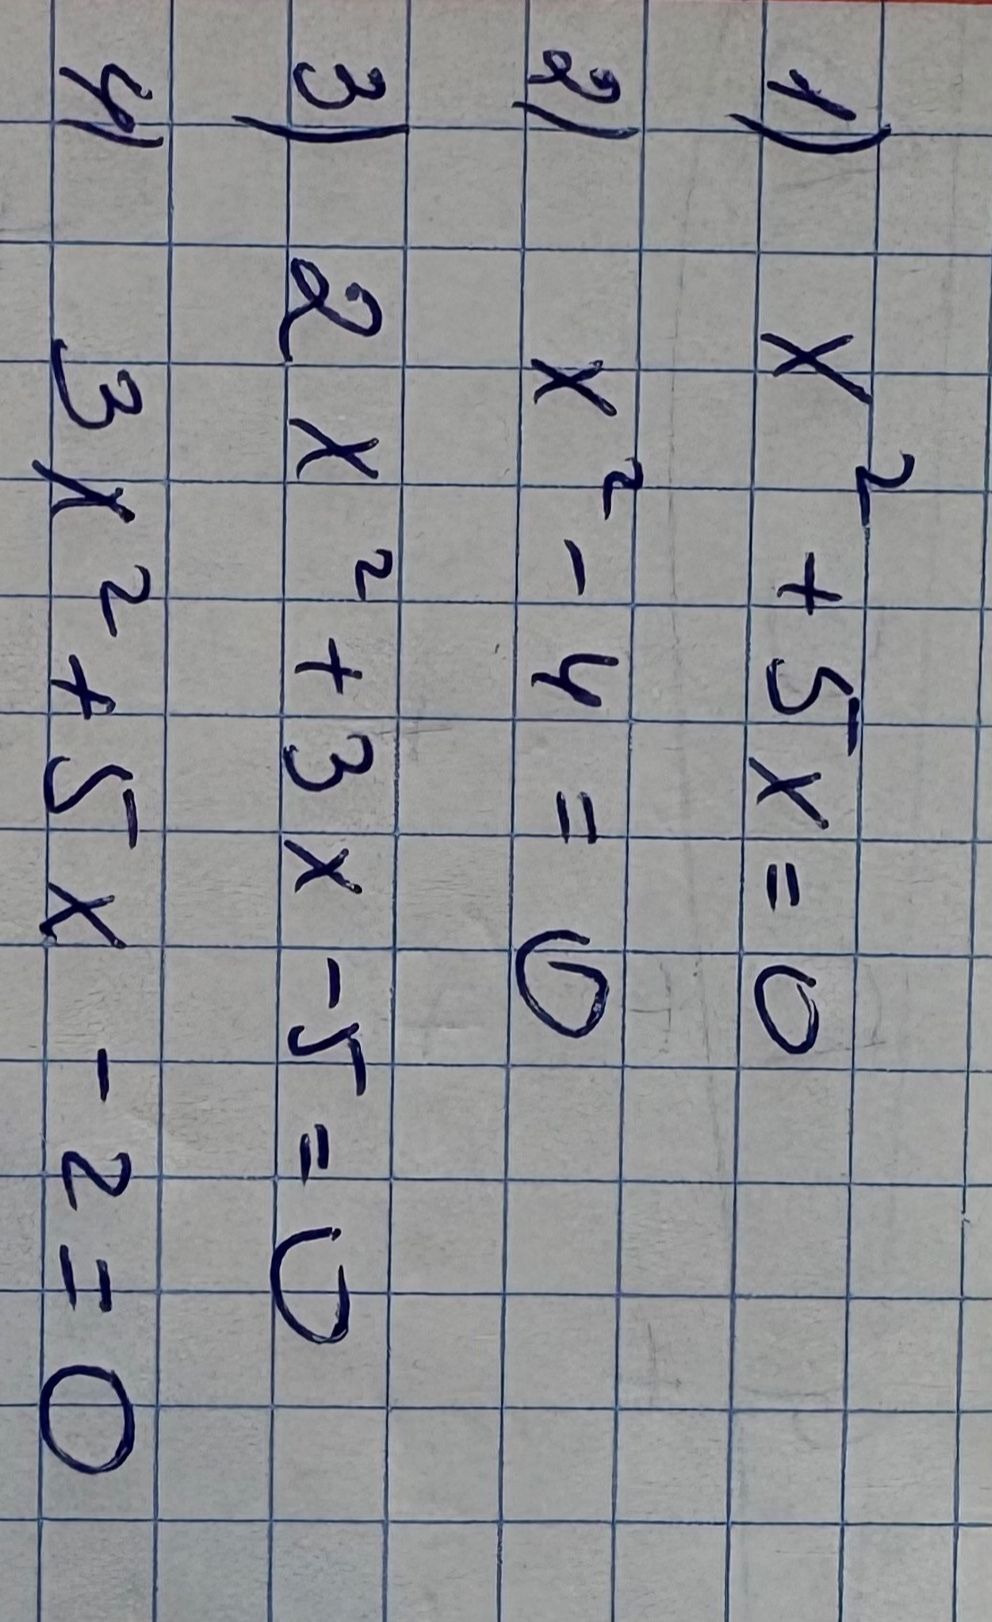 1) x² + 5x = 0
2) x² - 4 = 0
3) 2x² + 3x - 5 = 0
4) 3x² + 5x - 2 = 0